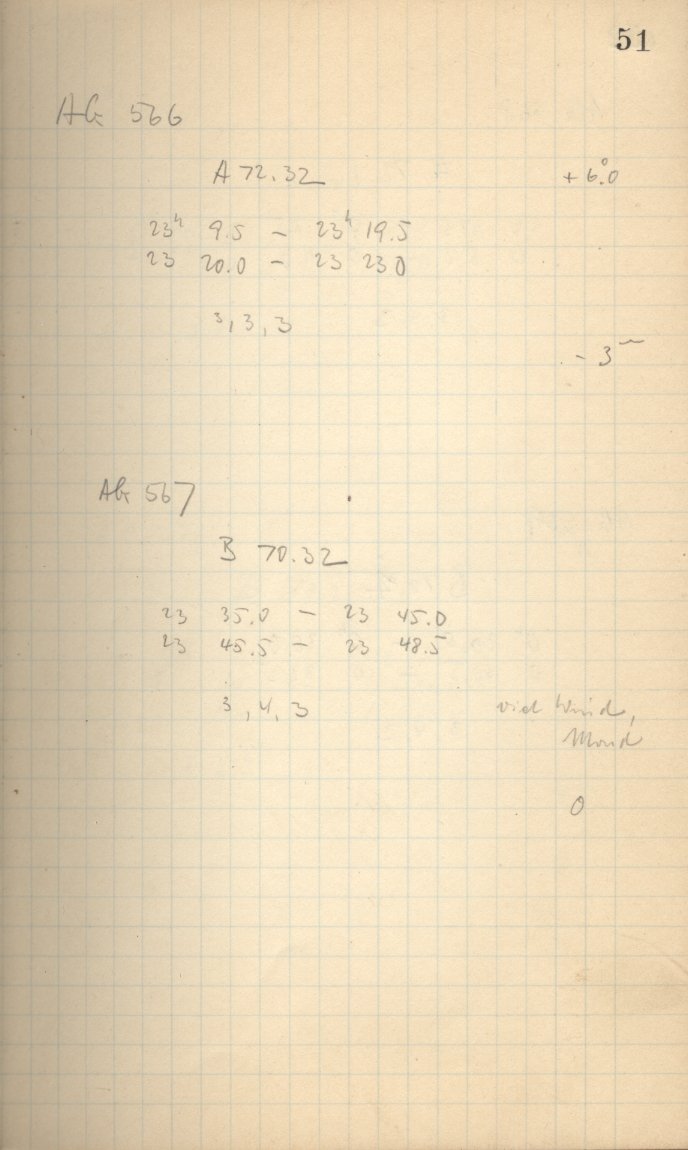 51
AG 566
A 72.32 + 6.°0
23ʰ 9.5 – 23ʰ 19.5
23 20.0 – 23 23 0
3, 3, 3
- 3ᵐ
AG 567
B 70.32
23 35.0 – 23 45.0
23 45.5 – 23 48.5
3, 4, 3 viel Wind,
Mond
0